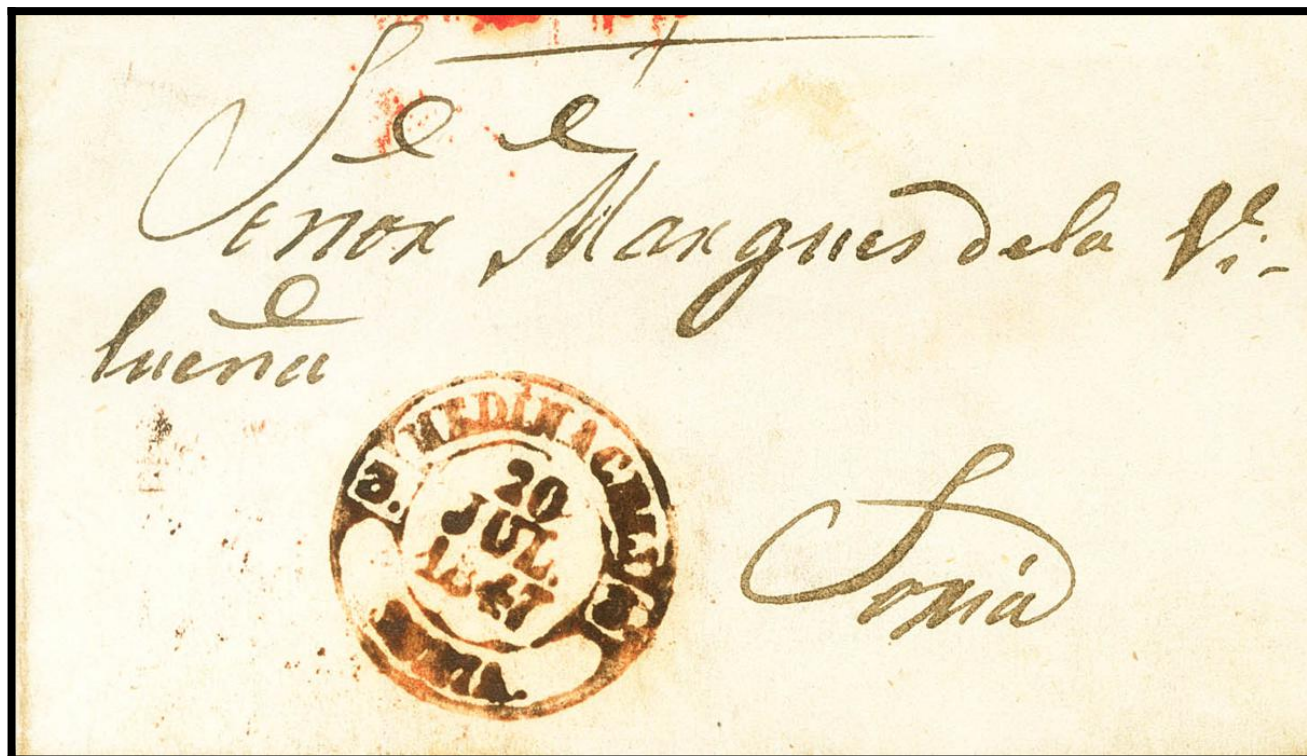 Señor Marques de la Vi-
lueña
MEDINACELI
20
JUL.
1847
Soria